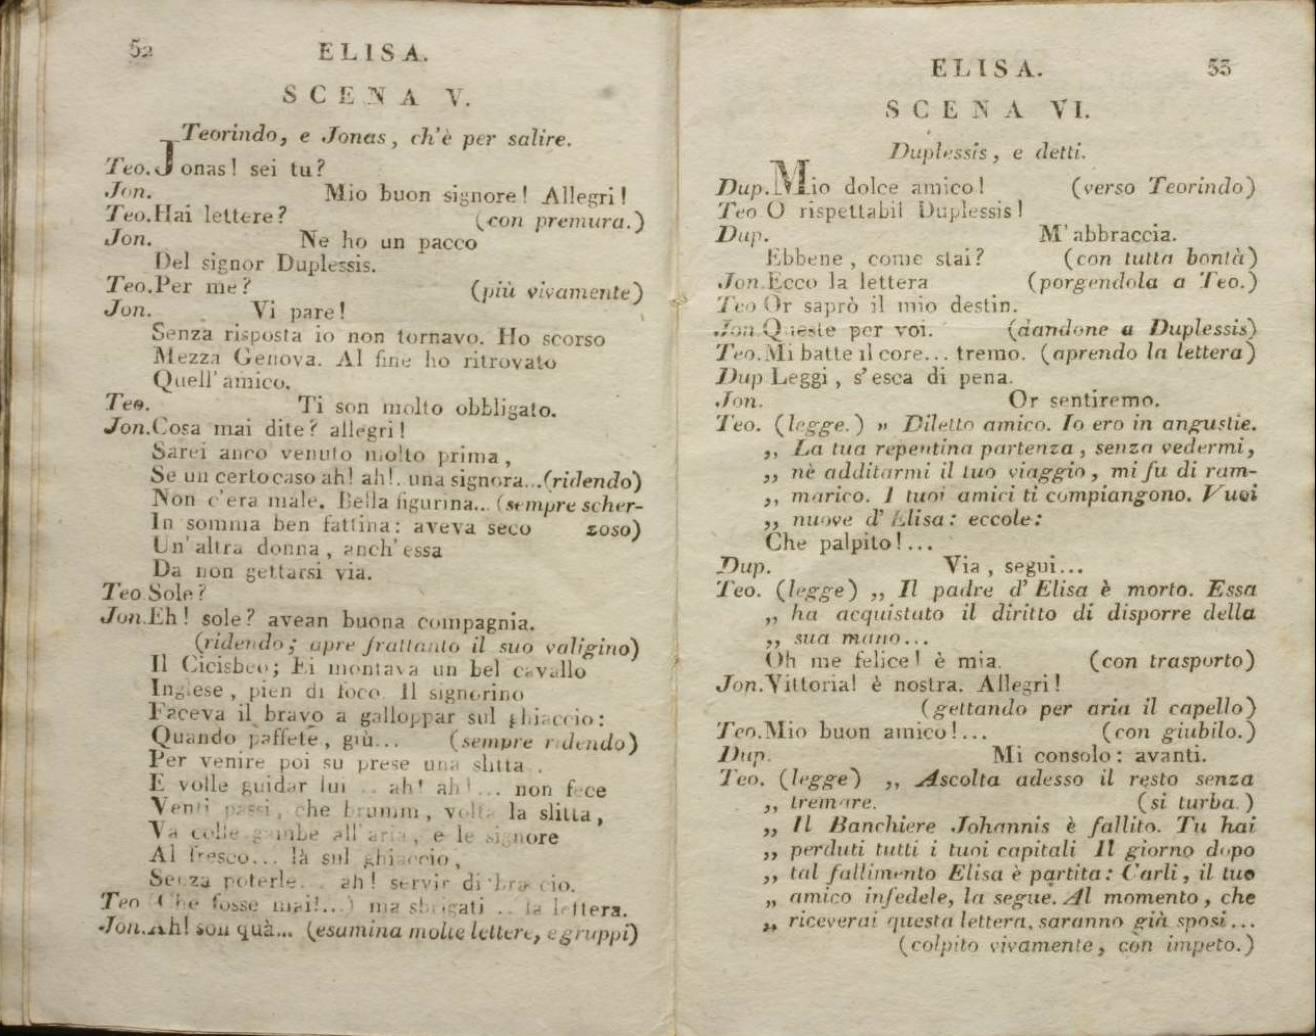 52
ELISA.
SCENA V.
Teorindo, e Jonas, ch'è per salire.
Teo. Jonas! sei tu?
Jon. Mio buon signore! Allegri!
Teo. Hai lettere? (con premura.)
Jon. Ne ho un pacco
Del signor Duplessis.
Teo. Per me? (più vivamente)
Jon. Vi pare!
Senza risposta io non tornavo. Ho scorso
Mezza Genova. Al fine ho ritrovato
Quell' amico.
Teo. Ti son molto obbligato.
Jon. Cosa mai dite? allegri!
Sarei anco venuto molto prima,
Se un certo caso ah! ah!. una signora...(ridendo)
Non c'era male. Bella figurina... (sempre scher-
In somma ben fattina: aveva seco zoso)
Un' altra donna, anch' essa
Da non gettarsi via.
Teo. Sole?
Jon. Eh! sole? avean buona compagnia.
(ridendo; apre frattanto il suo valigino)
Il Cicisbeo; Ei montava un bel cavallo
Inglese, pien di foco. Il signorino
Faceva il bravo a galloppar sul ghiaccio:
Quando paffete, giù... (sempre ridendo)
Per venire poi su prese una slitta..
E volle guidar lui .. ah! ah!... non fece
Venti passi, che brumm, volta la slitta,
Va colle gambe all' aria, e le signore
Al fresco... là sul ghiaccio,
Senza poterle... ah! servir di braccio.
Teo. (Che fosse mai!...) ma sbrigati .. la lettera.
Jon. Ah! son quà... (esamina molte lettere, e gruppi)
ELISA. 53
SCENA VI.
Duplessis, e detti.
Dup. Mio dolce amico! (verso Teorindo)
Teo O rispettabil Duplessis!
Dup. M' abbraccia.
Ebbene, come stai? (con tutta bontà)
Jon. Ecco la lettera (porgendola a Teo.)
Teo Or saprò il mio destin.
Jon. Queste per voi. (dandone a Duplessis)
Teo. Mi batte il core... tremo. (aprendo la lettera)
Dup Leggi, s' esca di pena.
Jon. Or sentiremo.
Teo. (legge.) „ Diletto amico. Io ero in angustie.
„ La tua repentina partenza, senza vedermi,
„ nè additarmi il tuo viaggio, mi fu di ram-
„ marico. I tuoi amici ti compiangono. Vuoi
„ nuove d' Elisa: eccole:
Che palpito!...
Dup. Via, segui...
Teo. (legge) „ Il padre d' Elisa è morto. Essa
„ ha acquistato il diritto di disporre della
„ sua mano...
Oh me felice! è mia. (con trasporto)
Jon. Vittoria! è nostra. Allegri!
(gettando per aria il capello)
Teo. Mio buon amico!... (con giubilo.)
Dup. Mi consolo: avanti.
Teo. (legge) „ Ascolta adesso il resto senza
„ tremare. (si turba.)
„ Il Banchiere Johannis è fallito. Tu hai
„ perduti tutti i tuoi capitali Il giorno dopo
„ tal fallimento Elisa è partita: Carli, il tuo
„ amico infedele, la segue. Al momento, che
„ riceverai questa lettera, saranno già sposi...
(colpito vivamente, con impeto.)